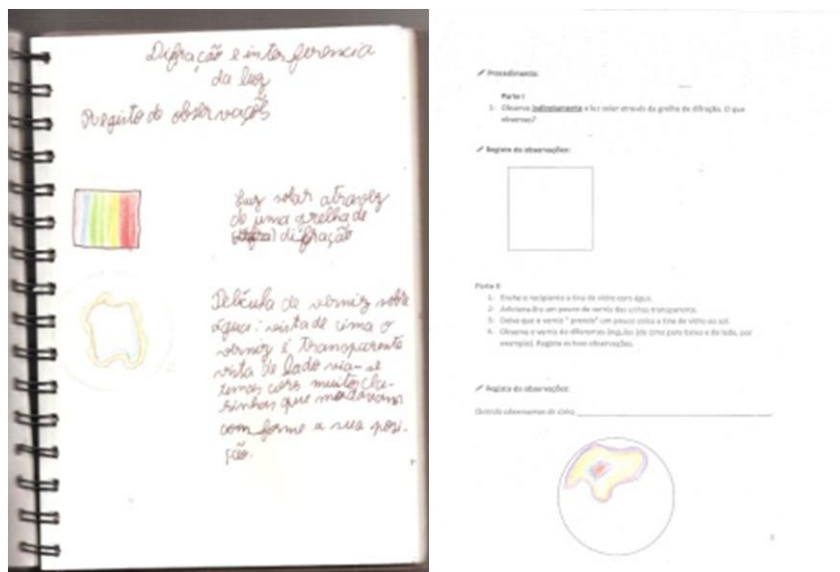 Difração e interferencia
da luz
Registo de observaçõs
Luz solar atravez
de uma grelha de
difração
Película de verniz sobre
água: vista de cima o
verniz é transparente
vista de lado via-se
temos cors muito cla-
rinhas que mudavam
com forme a sua posi-
ção.
Procedimento:
Parte I
1- Observa indiretamente a luz solar através da grelha de difração. O que
observas?
Registo de observações:
Parte II
1- Enche o recipiente a tina de vidro com água.
2- Adiciona-lhe um pouco de verniz das unhas transparente.
3- Deixa que o verniz " prenda" um pouco coloca a tina de vidro ao sol.
4- Observa o verniz de diferentes ângulos (de cima para baixo e de lado, por
exemplo). Regista as tuas observações.
Registo de observações:
Quando observamos de cima,